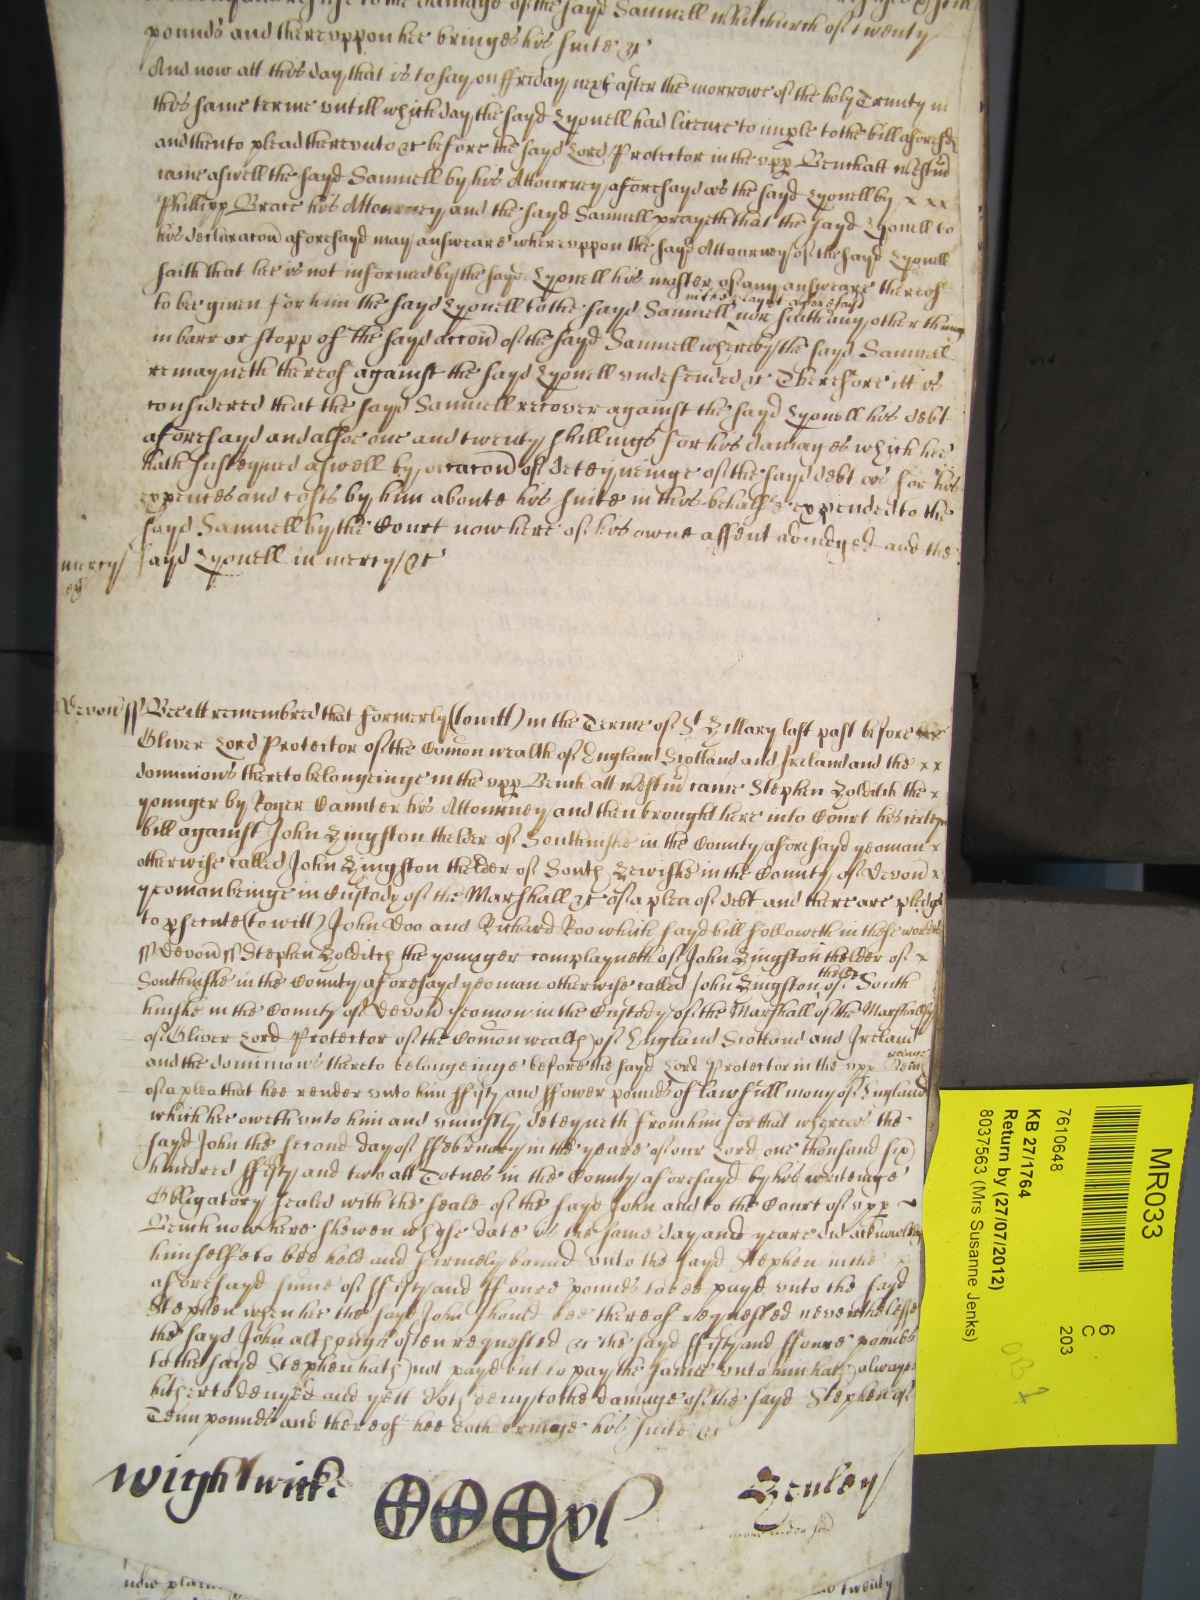 to the damage of the sayd Samuell Whitchurch of twenty
pounds and thereuppon hee bringes his suite &c
And now att this day that is to say on ffriday next after the morrowe of the holy Trinity in
this same terme untill which day the sayd Lyonell had licence to imple to the bill aforesd
and then to plead thereunto &c before the sayd Lord Protector in the upp Bench att Westm
came aswell the sayd Samuell by his Attourney aforesayd as the sayd Lyonell by x x x
Phillipp Brace his Attourney and the sayd Samuell prayeth that the sayd Lyonell to
his declaracon aforesayd may answeare whereuppon the sayd Attourney of the sayd Lyonell
saith that hee is not informed by the sayd Lyonell his master of any answeare thereof
in the playnt aforesayd
to bee given for him the sayd Lyonell to the sayd Samuell nor saith any other thing
in barr or stopp of the sayd accon of the sayd Samuell whereby the sayd Samuell
remayneth thereof against the sayd Lyonell undefended &c Therefore itt is
considered that the sayd Samuell recover against the sayd Lyonell his debt
aforesayd and alsoe one and twenty shillings for his damages which hee
hath susteyned aswell by occacon of deteyneinge of the sayd debt as for his
expences and costs by him aboute his suite in this behalfe expended to the
sayd Samuell by the Court now here of his owne assent adiudged and the
mercy sayd Lyonell in mercy &c
Devon ss Bee itt remembred that formerly (to witt) in the Terme of St Hillary last past before
Oliver Lord Protector of the Comon wealth of England Scotland and Ireland and the x x
dominions thereto belongeinge in the upp Bench att Westm came Stephen Holditch the x
younger by Roger Caunter his Attourney and then brought here into Court his certeyn
bill against John Kingston thelder of Southuiske in the County aforesayd yeoman x
otherwise called John Kingston thelder of South Hewiske in the County of Devon x
yeoman beinge in Custody of the Marshall &c of a plea of debt and there are pledgs
to psecute (to witt) John Doo and Richard Roo which sayd bill followeth in these words
ss Devon ss Stephen Holditch the younger complayneth of John Kingston thelder of x
Southuiske in the County aforesayd yeoman otherwise called John Kingston thelder of South
huiske in the County of Devon yeoman in the Custody of the Marshall of the Marshallsy
of Oliver Lord Protector of the Comon wealth of England Scotland and Ireland
and the dominions thereto belongeinge before the sayd Lord Protector in the upp Bench
of a plea that hee render unto him ffifty and ffower pounds of lawfull mony of England
which hee oweth unto him and uniustly deteyneth from him for that wheras the
sayd John the second day of ffebruary in the yeare of our Lord one thousand six
hundred ffifty and two att Totnes in the County aforesayd by his writeinge
Obligatory sealed with the seale of the sayd John and to the Court of upp
Bench now here shewen whose date is the same day and yeare did acknowledg
himselfe to bee held and firmely bound unto the sayd Stephen in the
aforesayd sume of ffifty and ffoure pounds to bee payd unto the sayd
Stephen when hee the sayd John should bee thereof requested neverthelesse
the sayd John although often requested &c the sayd ffifty and ffoure pounds
to the sayd Stephen hath not payd but to pay the same unto him hath alwayes
hitherto denyed and yett doth deny to the damage of the sayd Stephen of
Tenn pounds and thereof hee doth bringe his suite &c
Wightwicke
xl
Henley
twenty
MR033
6
C
203
7610648
KB 27/1764
Return by (27/07/2012)
8037563 (Mrs Susanne Jenks)